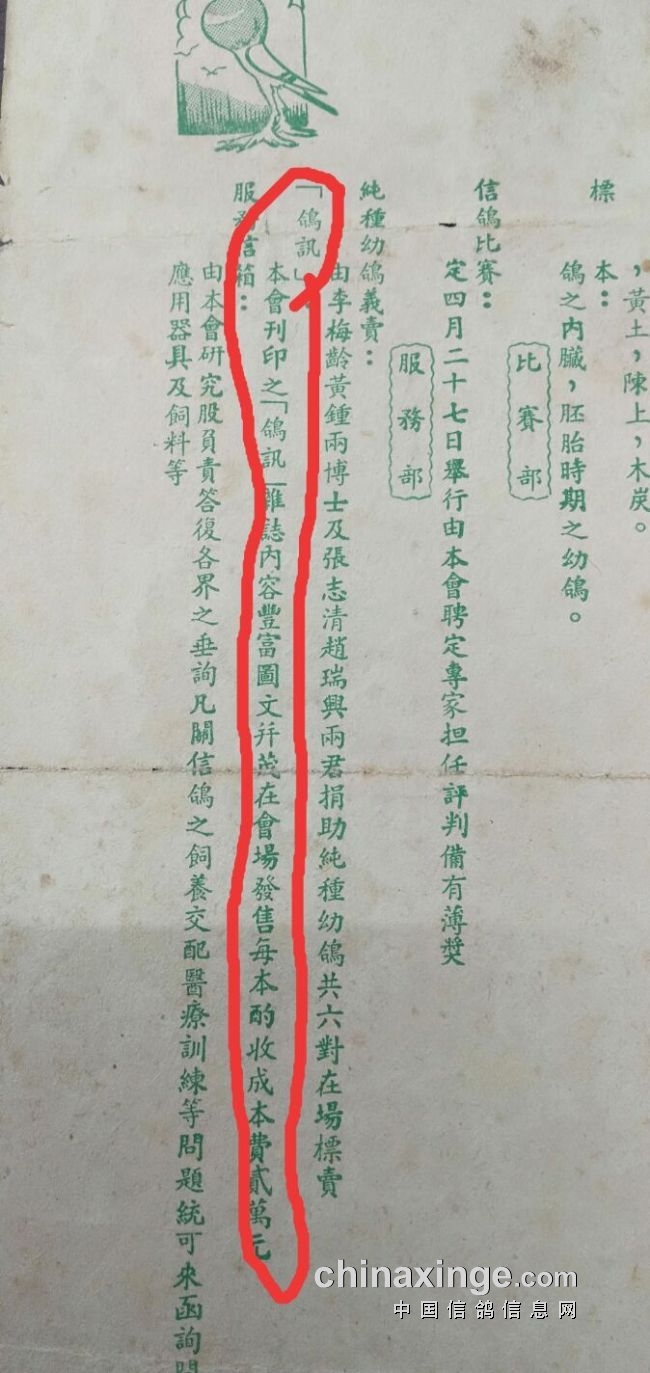 ，黃土，陳上，木炭。
標本：
鴿之內臟，胚胎時期之幼鴿。
比賽部
信鴿比賽：
定四月二十七日舉行由本會聘定專家担任評判備有薄奬
服務部
純種幼鴿義賣：
由李梅齡黃鍾兩博士及張志清趙瑞興兩君捐助純種幼鴿共六對在場標賣
「鴿訊」
本會刊印之「鴿訊」雜誌內容豐富圖文并茂在會場發售每本酌收成本費貳萬元
服務信箱：
由本會研究股負責答復各界之垂詢凡關信鴿之飼養交配醫療訓練等問題統可來函詢問
應用器具及飼料等
chinaxinge.com
中国信鸽信息网